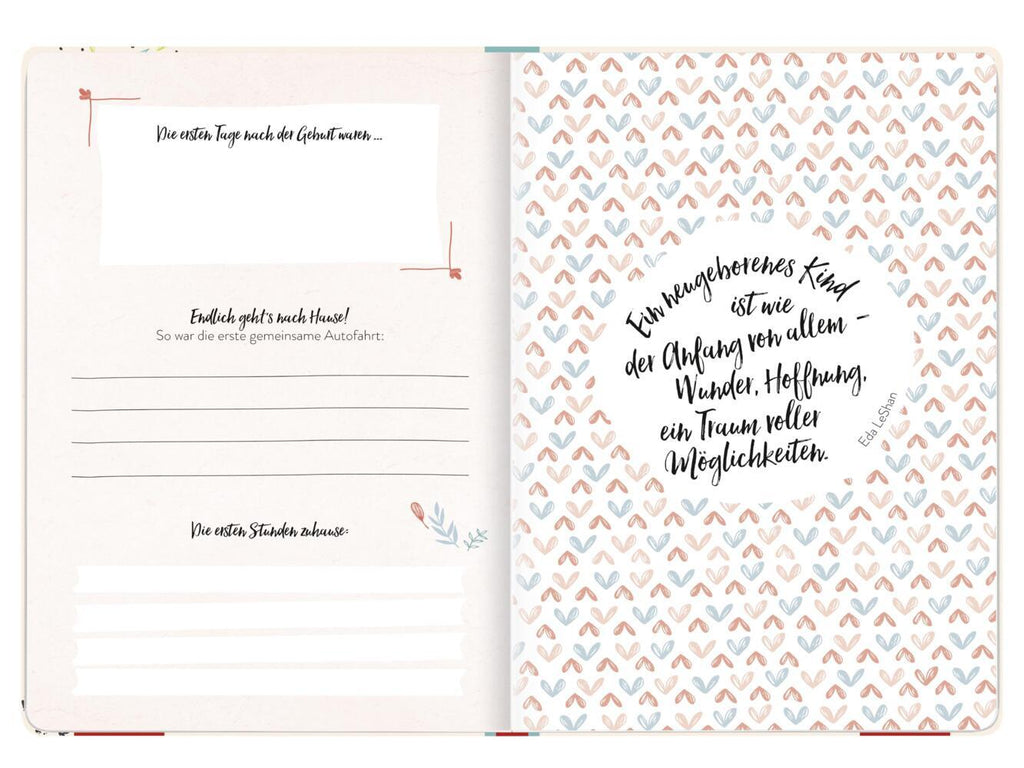 Die ersten Tage nach der Geburt waren ...
Endlich geht's nach Hause!
So war die erste gemeinsame Autofahrt:
Die ersten Stunden zuhause:
Ein neugeborenes Kind
ist wie
der Anfang von allem –
Wunder, Hoffnung,
ein Traum voller
Möglichkeiten.
Eda LeShan